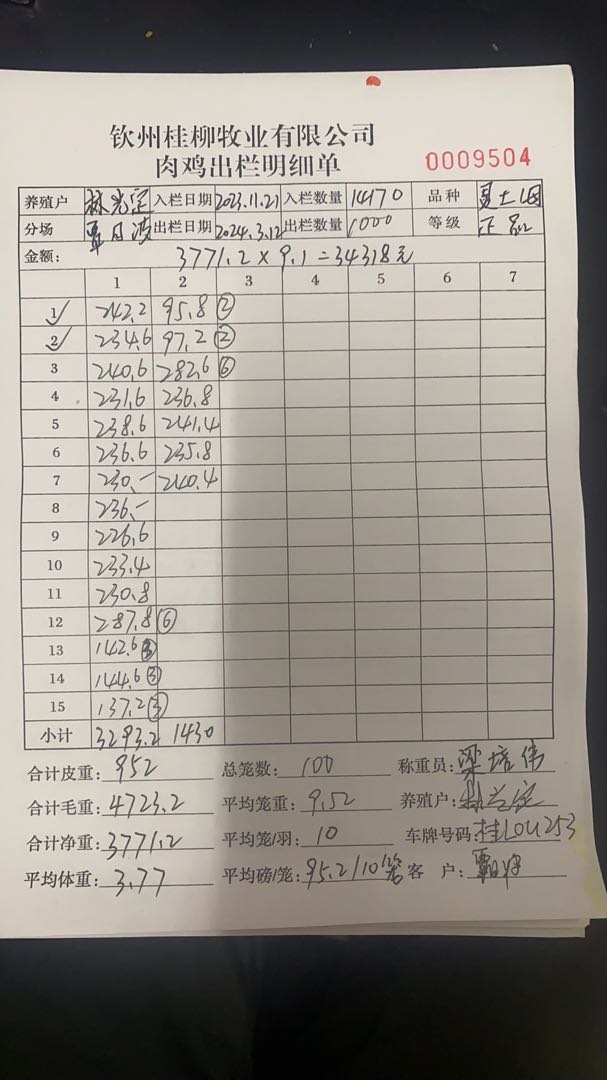 钦州桂柳牧业有限公司
肉鸡出栏明细单
0009504
养殖户 林光定 入栏日期 2023.11.21 入栏数量 14170 品种
分场 覃日波 出栏日期 2024.3.12 出栏数量 1000 等级 正品
金额: 3771.2 × 9.1 = 34318元
1 2 3 4 5 6 7
1 242.2 95.8 ②
2 234.6 97.2 ②
3 240.6 282.6 ⑥
4 231.6 236.8
5 238.6 241.4
6 236.6 235.8
7 230.- 240.4
8 236.-
9 226.6
10 233.4
11 230.8
12 287.8 ⑥
13 142.6 ③
14 144.6 ③
15 137.2 ③
小计 3293.2 1430
合计皮重: 952 总笼数: 100 称重员: 梁培伟
合计毛重: 4723.2 平均笼重: 9.52 养殖户:
合计净重: 3771.2 平均笼/羽: 10 车牌号码: 桂L0U253
平均体重: 3.77 平均磅/笼: 95.2/10 客 户: